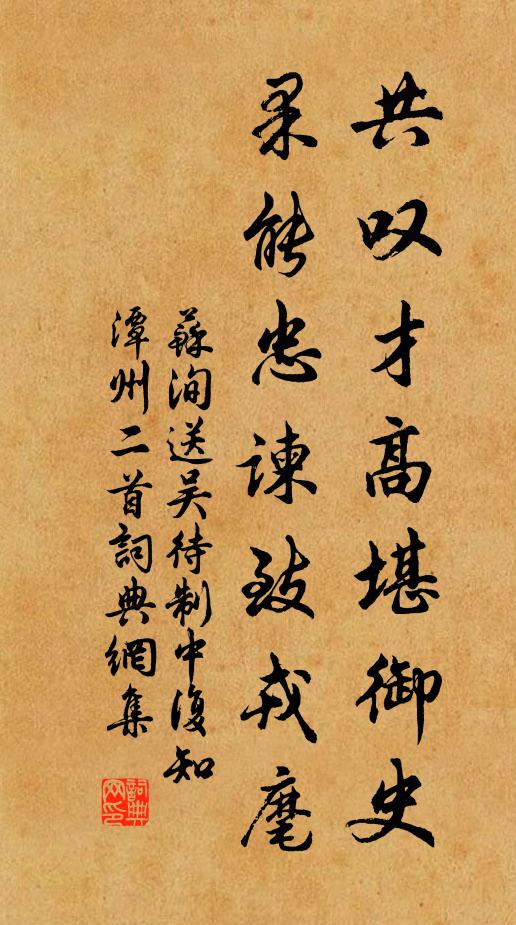 共叹才高堪御史
果能忠谏致戎麾
蘇洵送吴待制中復知
潭州二首詞典網集
詞典网印